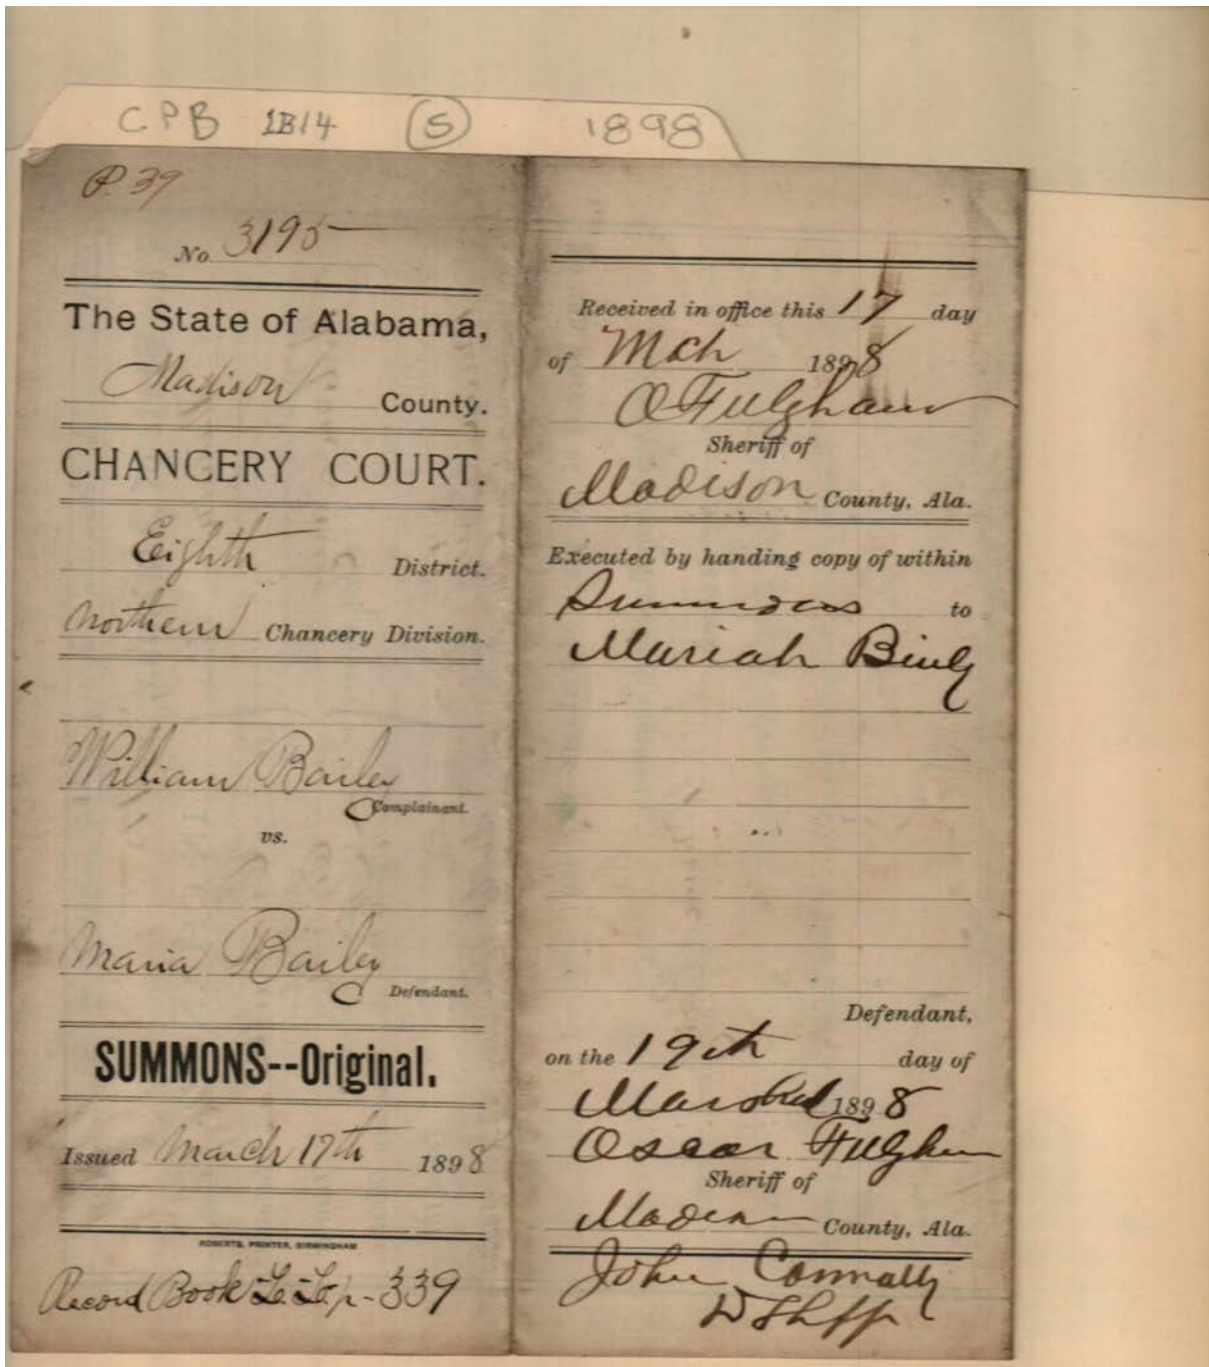 CPB 1B14 (S) 1898
P. 39
No. 3195
The State of Alabama,
Madison County.
CHANCERY COURT.
Eighth District.
Northern Chancery Division.
William Bailey
Complainant.
vs.
Maria Bailey
Defendant.
SUMMONS--Original.
Issued March 17th 1898
ROBERTS, PRINTER, BIRMINGHAM
Record Book p- 339
Received in office this 17 day
of Mch 1898
O Fulgham
Sheriff of
Madison County, Ala.
Executed by handing copy of within
to
Mariah
Defendant,
on the 19th day of
1898
Oscar Fulgham
Sheriff of
Madison County, Ala.
John Connally
D Shff